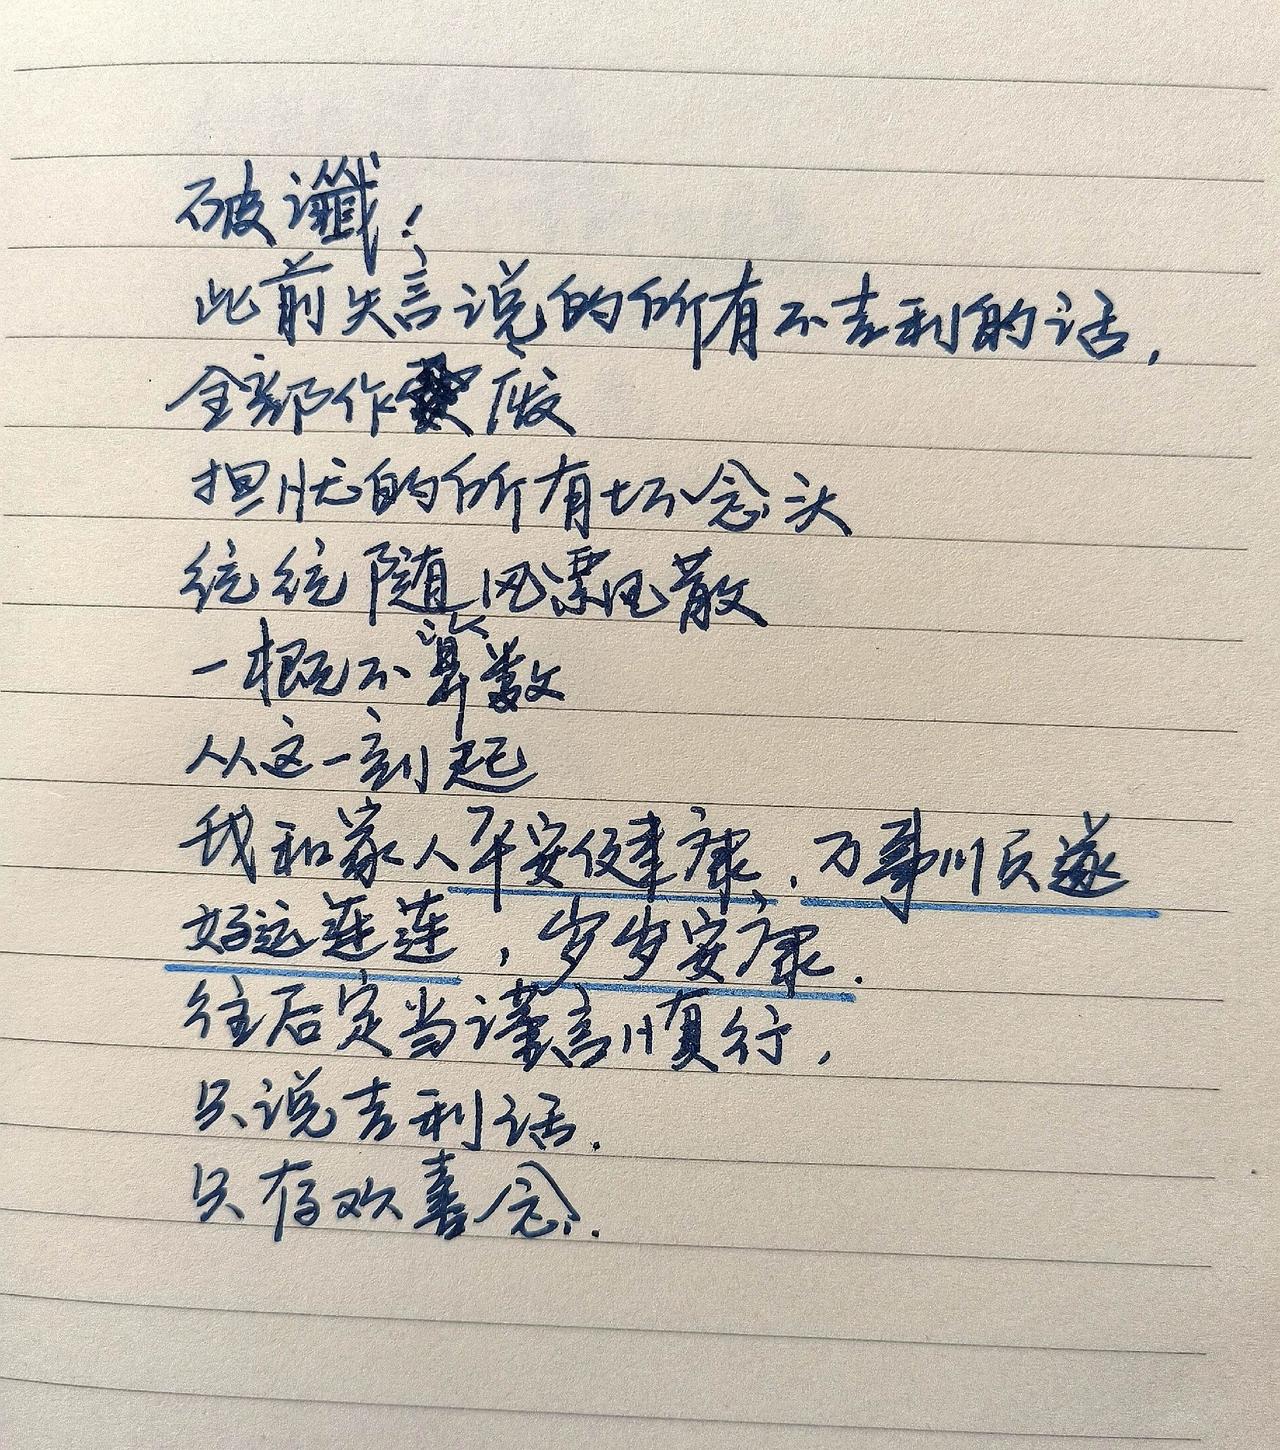 破谶!
此前失言说的所有不吉利的话,
全部作废
担忧的所有坏念头
统统随风飘散
一概不算数
从这一刻起
我和家人平安健康、万事顺遂
好运连连,岁岁安康.
往后定当谨言慎行,
只说吉利话.
只存欢喜念.